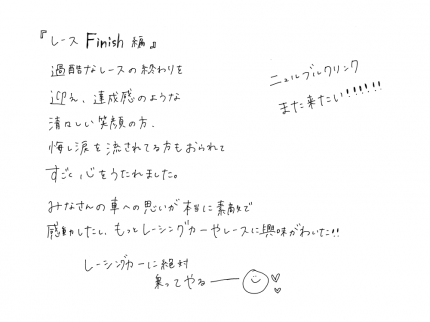 『レース Finish 編』
過酷なレースの終わりを
迎え、達成感のような
清々しい笑顔の方、
悔し涙を流されてる方もおられて
すごく心をうたれました。
みなさんの車への思いが本当に素敵で
感動したし、もっとレーシングカーやレースに興味がわいた!!
レーシングカーに絶対
乗ってやるー
ニュルブルクリンク
また来たい!!!!!!